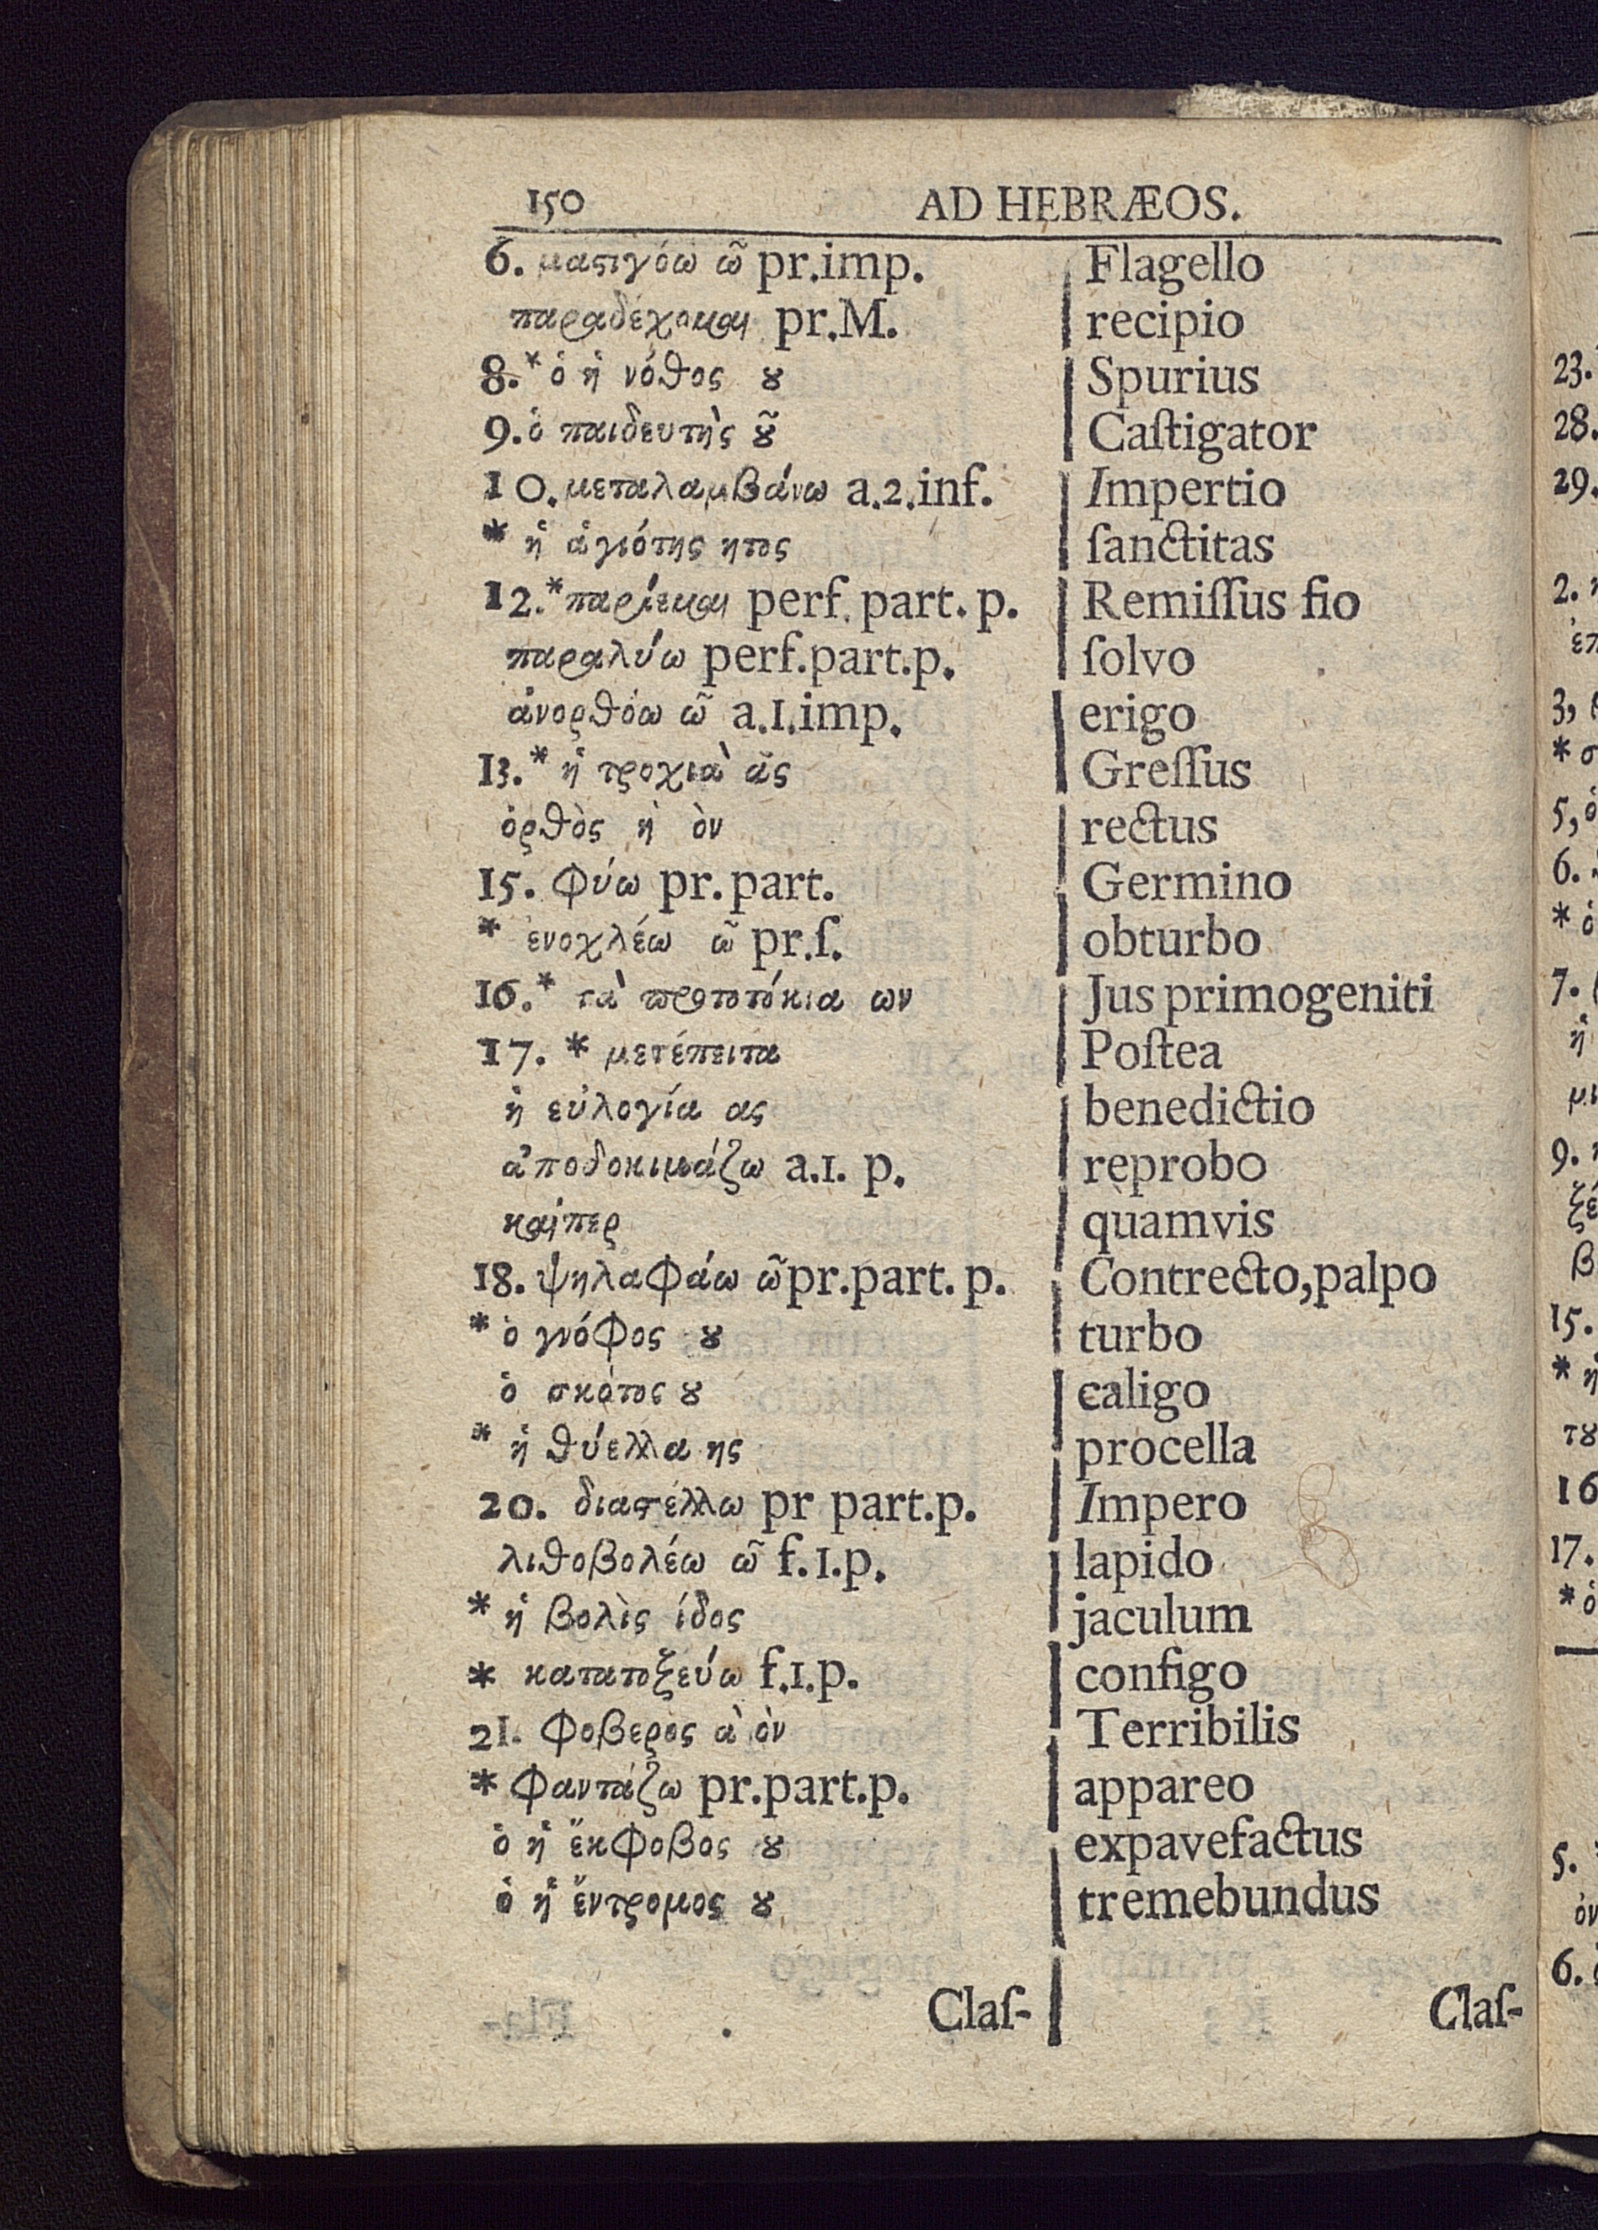 150 AD HEBRÆOS.
6. μαϛιγόω ῶ pr.imp. Flagello
παραδέχομαι pr.M. recipio
8.* ὁ ἡ νόθος ȣ Spurius
9. ὁ παιδευτὴς ȣ͂ Caſtigator
10. μεταλαμβάνω a.2.inf. Impertio
* ἡ ἁγιότης ητος ſanctitas
12.* παρίεμαι perf. part. p. Remiſſus fio
παραλύω perf.part.p. ſolvo
ἀνορθόω ῶ a.1.imp. erigo
13.* ἡ τροχιὰ ᾶς Greſſus
ὀρθὸς ὴ ὸν rectus
15. φύω pr.part. Germino
* ἐνοχλέω ῶ pr.ſ. obturbo
16.* τὰ πρωτοτόκια ων Jus primogeniti
17. * μετέπειτα Poſtea
ἡ εὐλογία ας benedictio
ἀποδοκιμάζω a.1. p. reprobo
καίπερ quamvis
18. ψηλαφάω ῶ pr.part. p. Contrecto, palpo
* ὁ γνόφος ȣ turbo
ὁ σκότος ȣ caligo
* ἡ θύελλα ης procella
20. διαϛέλλω pr part.p. Impero
λιθοβολέω ῶ f.1.p. lapido
* ἡ βολὶς ίδος jaculum
* κατατοξεύω f.1.p. configo
21. φοβερὸς ὰ ὸν Terribilis
* φαντάζω pr.part.p. appareo
ὁ ἡ ἔκφοβος ȣ expavefactus
ὁ ἡ ἔντρομος ȣ tremebundus
Claſ- Claſ-
23.
28.
29.
2.
3,
* σ
5, ὁ
6.
* ὁ
7.
ἡ
μι
9.
ζέ
β
15.
* ἡ
τȣ
16
17.
* ὁ
5.
ὸν
6.